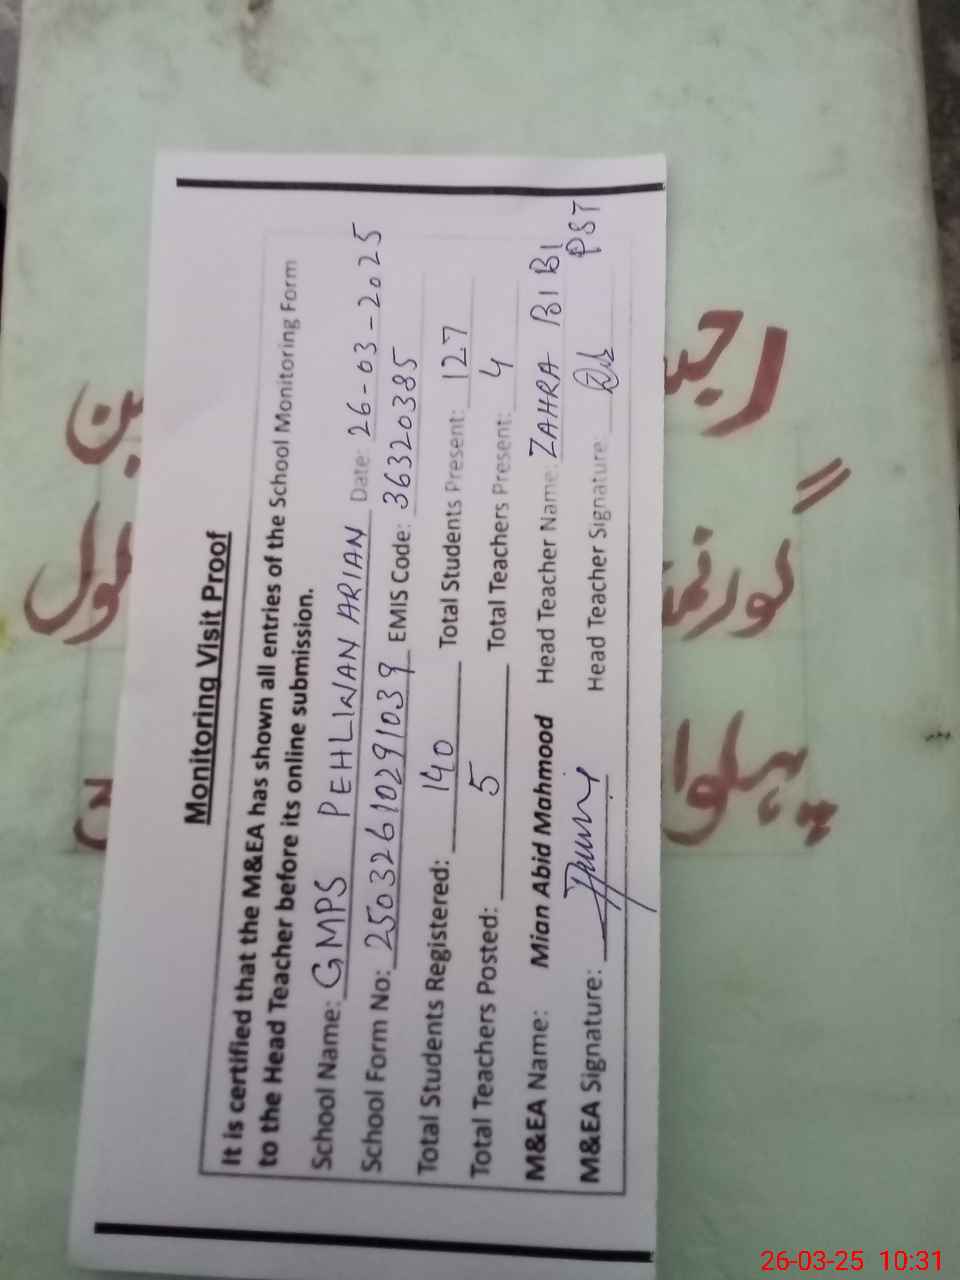 Monitoring Visit Proof
It is certified that the M&EA has shown all entries of the School Monitoring Form
to the Head Teacher before its online submission.
School Name: GMPS PEHLIWAN ARIAN Date: 26-03-2025
School Form No: 25032610291039 EMIS Code: 36320385
Total Students Registered: 140 Total Students Present: 127
Total Teachers Posted: 5 Total Teachers Present: 4
M&EA Name: Mian Abid Mahmood Head Teacher Name: ZAHRA BI BI
M&EA Signature: Head Teacher Signature: PST
26-03-25 10:31